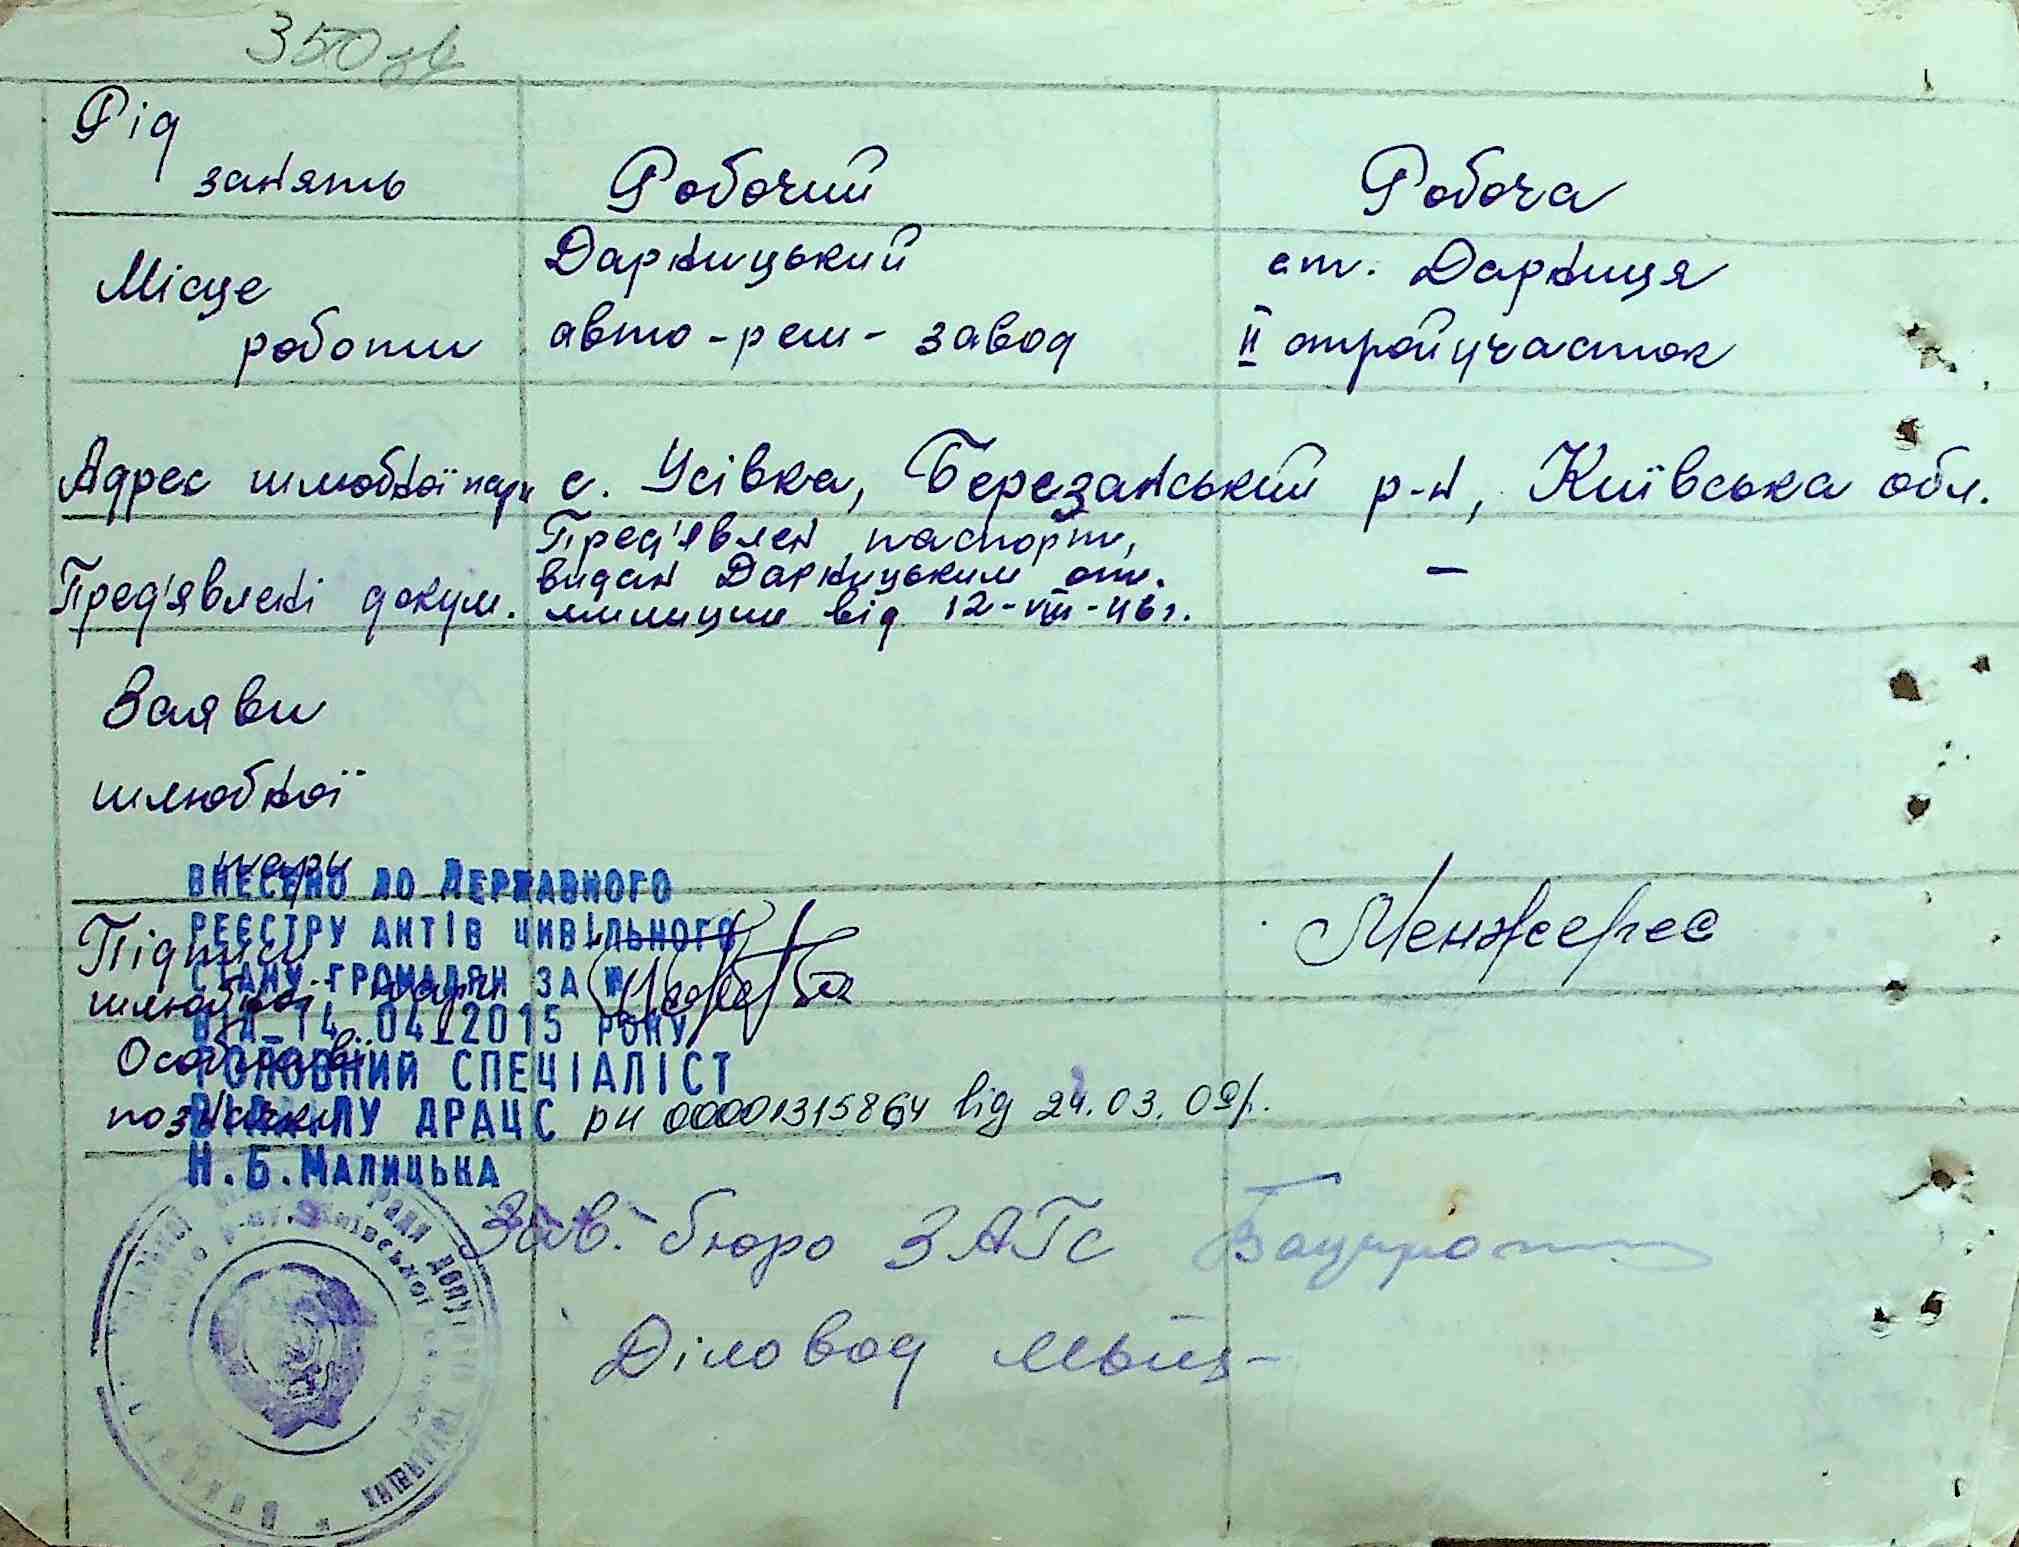 350
Рід
занять
Робочий
Робоча
Місце
роботи
Дарницький
авто-рем-завод
ст. Дарниця
II стройучасток
Адрес шлюбної пари
с. Усівка, Березанський р-н, Київська обл.
Пред'явлені докум.
Пред'явлен паспорт,
видан Дарницьким отд.
милиции від 12-VIII-46 г.
—
Заяви
шлюбної
пари
Підписи
шлюбної пари
Менжерес
Особливі
позначки
ВНЕСЕНО ДО ДЕРЖАВНОГО
РЕЄСТРУ АКТІВ ЦИВІЛЬНОГО
СТАНУ ГРОМАДЯН ЗА №
ВІД 14.04.2015 РОКУ
ГОЛОВНИЙ СПЕЦІАЛІСТ
ВІДДІЛУ ДРАЦС рн 00001315864 від 24.03.09р.
Н.Б.МАЛИЦЬКА
Зав. бюро ЗАГС
Діловод